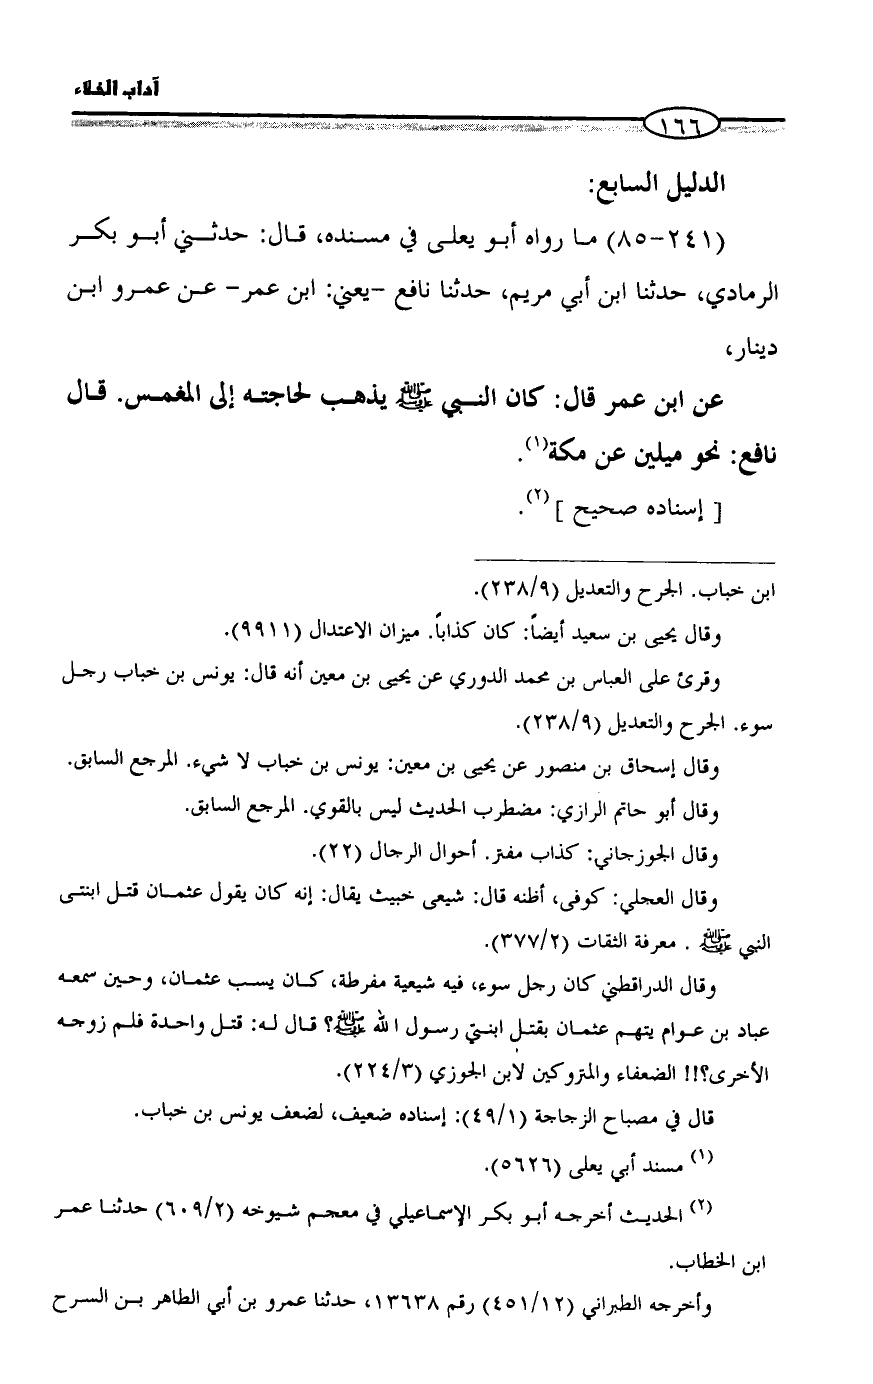 آداب الخلاء
١٦٦
الدليل السابع:
(٢٤١-٨٥) ما رواه أبو يعلى في مسنده، قال: حدثني أبو بكر
الرمادي، حدثنا ابن أبي مريم، حدثنا نافع -يعني: ابن عمر- عن عمرو ابن
دينار،
عن ابن عمر قال: كان النبي ﷺ يذهب لحاجته إلى المغمس. قال
نافع: نحو ميلين عن مكة(١).
[ إسناده صحيح ](٢).
ابن خباب. الجرح والتعديل (٢٣٨/٩).
وقال يحيى بن سعيد أيضاً: كان كذاباً. ميزان الاعتدال (٩٩١١).
وقرئ على العباس بن محمد الدوري عن يحيى بن معين أنه قال: يونس بن خباب رجل
سوء. الجرح والتعديل (٢٣٨/٩).
وقال إسحاق بن منصور عن يحيى بن معين: يونس بن خباب لا شيء. المرجع السابق.
وقال أبو حاتم الرازي: مضطرب الحديث ليس بالقوي. المرجع السابق.
وقال الجوزجاني: كذاب مفتر. أحوال الرجال (٢٢).
وقال العجلي: كوفى، أظنه قال: شيعى خبيث يقال: إنه كان يقول عثمان قتل ابنتى
النبي ﷺ . معرفة الثقات (٣٧٧/٢).
وقال الدراقطني كان رجل سوء، فيه شيعية مفرطة، كان يسب عثمان، وحين سمعه
عباد بن عوام يتهم عثمان بقتل ابنتي رسول الله ﷺ؟ قال له: قتل واحدة فلم زوجه
الأخرى؟!! الضعفاء والمتروكين لابن الجوزي (٢٢٤/٣).
قال في مصباح الزجاجة (٤٩/١): إسناده ضعيف، لضعف يونس بن خباب.
(١) مسند أبي يعلى (٥٦٢٦).
(٢) الحديث أخرجه أبو بكر الإسماعيلي في معجم شيوخه (٦٠٩/٢) حدثنا عمر
ابن الخطاب.
وأخرجه الطبراني (٤٥١/١٢) رقم ١٣٦٣٨، حدثنا عمرو بن أبي الطاهر بن السرح